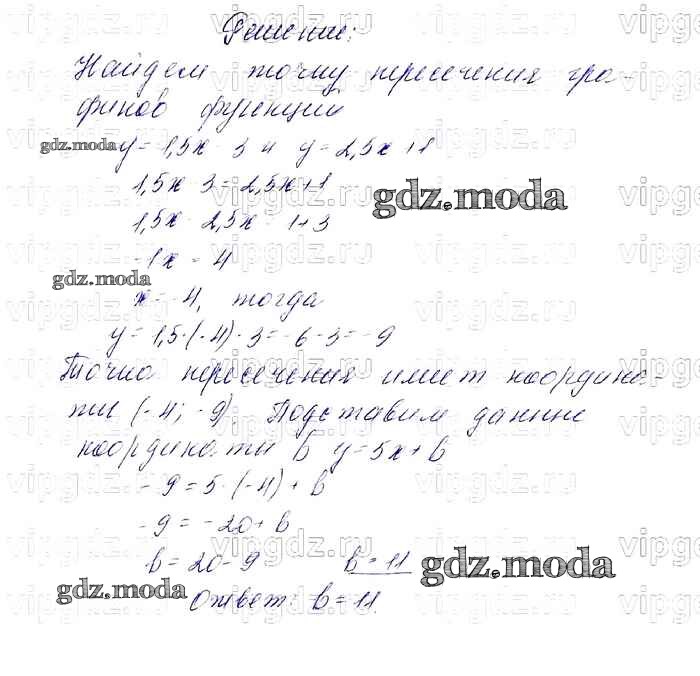 Решение:
Найдем точку пересечения гра-
фиков функций
y = 1,5x - 3 и y = 2,5x + 1
1,5x - 3 = 2,5x + 1
1,5x - 2,5x = 1 + 3
-1x = 4
x = -4, тогда
y = 1,5·(-4) - 3 = -6 - 3 = -9
Точка пересечения имеет координа-
ты (-4; -9) Подставим данные
координаты в y = 5x + b
-9 = 5·(-4) + b
-9 = -20 + b
b = 20 - 9    b = 11
Ответ: b = 11
gdz.moda
gdz.moda
gdz.moda
gdz.moda
gdz.moda
vipgdz.ru